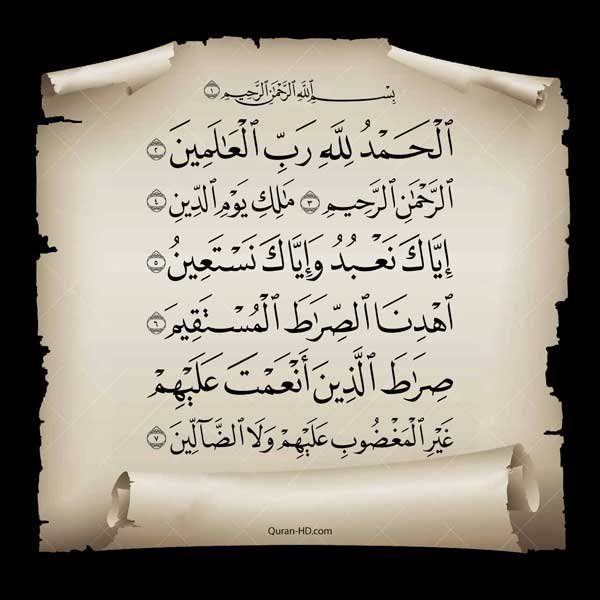 بِسْمِ ٱللَّهِ ٱلرَّحْمَٰنِ ٱلرَّحِيمِ ١
ٱلْحَمْدُ لِلَّهِ رَبِّ ٱلْعَٰلَمِينَ ٢
ٱلرَّحْمَٰنِ ٱلرَّحِيمِ ٣ مَٰلِكِ يَوْمِ ٱلدِّينِ ٤
إِيَّاكَ نَعْبُدُ وَإِيَّاكَ نَسْتَعِينُ ٥
ٱهْدِنَا ٱلصِّرَٰطَ ٱلْمُسْتَقِيمَ ٦
صِرَٰطَ ٱلَّذِينَ أَنْعَمْتَ عَلَيْهِمْ
غَيْرِ ٱلْمَغْضُوبِ عَلَيْهِمْ وَلَا ٱلضَّآلِّينَ ٧
Quran-HD.com